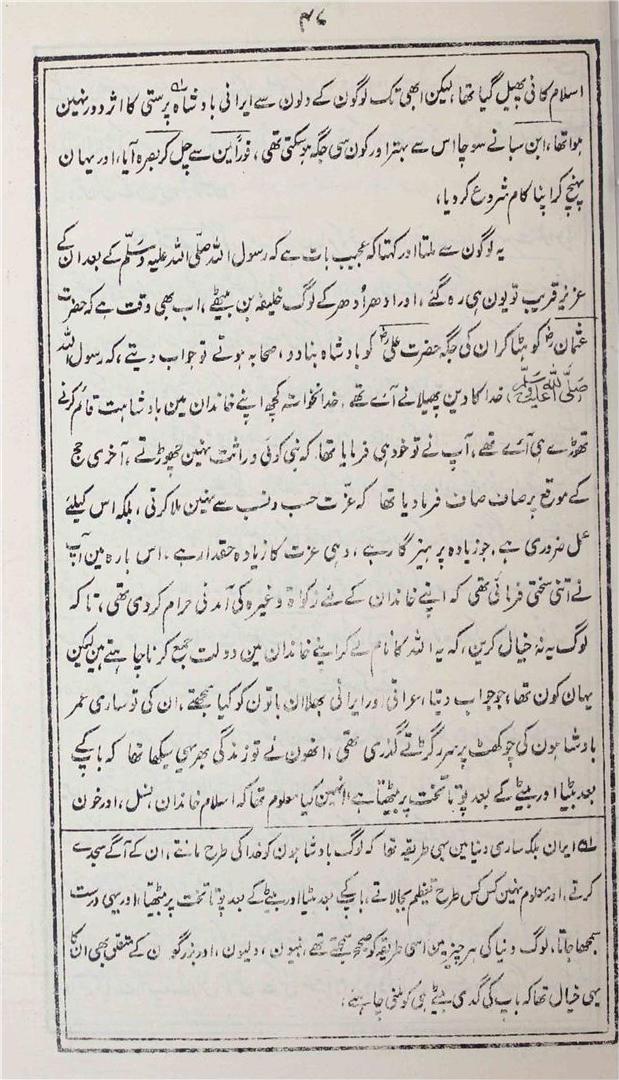 ۳۸
اسلام کافی پھیل گیا تھا، لیکن ابھی تک لوگون کے دلون سے ایرانی بادشاہ پرستی کا اثر دور نہین
ہوا تھا، ابن سبا نے سوچا اس سے بہتر اور کون سی جگہ ہو سکتی تھی، فوراً یمن سے چل کر بصرہ آیا، اور یہان
پہنچ کر اپنا کام شروع کر دیا،
یہ لوگون سے ملتا اور کہتا کہ عجیب بات ہے کہ رسول اللہ صلی اللہ علیہ وسلم کے بعد ان کے
عزیز قریب تو یون ہی رہ گئے، اور ادھر اُدھر کے لوگ خلیفہ بن بیٹھے، اب بھی وقت ہے کہ حضرت
عثمانؓ کو ہٹا کر ان کی جگہ حضرت علیؓ کو بادشاہ بنا دو، صحابہ ہوتے تو جواب دیتے، کہ رسول اللہ
صلی اللہ علیہ وسلم، خدا کا دین پھیلانے آئے تھے، خدانخواستہ کچھ اپنے خاندان مین بادشاہت قائم کرنے
تھوڑے ہی آئے تھے، آپ نے تو خود ہی فرمایا تھا، کہ نبی کوئی وراثت نہین چھوڑتے، آخری حج
کے موقع پر صاف صاف فرما دیا تھا کہ عزّت حسب و نسب سے نہین ملا کرتی، بلکہ اس کیلئے
عمل ضروری ہے، جو زیادہ پرہیزگار ہے، وہی عزت کا زیادہ حقدار ہے۔ اس بارہ مین آپ
نے اتنی سختی فرمائی تھی کہ اپنے خاندان کے لئے زکوٰۃ وغیرہ کی آمدنی حرام کر دی تھی، تاکہ
لوگ یہ نہ خیال کرین، کہ یہ اللہ کا نام لے کر اپنے خاندان مین دولت جمع کرنا چاہتے ہین لیکن
یہان کون تھا، جو جواب دیتا، عراقی اور ایرانی بھلا ان باتون کو کیا سمجھتے، ان کی تو ساری عمر
بادشاہون کی چوکھٹ پر سر رگڑتے گذری تھی، انھون نے تو زندگی بھر یہی سیکھا تھا کہ باپ کے
بعد بیٹا اور بیٹے کے بعد پوتا تخت پر بیٹھتا ہے، انھین کیا معلوم تھا کہ اسلام خاندان، نسل، اور خون
لہ ایران بلکہ ساری دنیا مین یہی طریقہ تھا کہ لوگ بادشاہون کو خدا کی طرح مانتے، ان کے آگے سجدے
کرتے، اور معلوم نہین کس کس طرح تعظیم بجا لاتے، باپ کے بعد بیٹا اور بیٹے کے بعد پوتا تخت پر بیٹھتا، اور یہی درست
سمجھا جاتا، لوگ دنیا کی ہر چیز مین اسی طریقہ کو صحیح سمجھتے تھے، نبیون، ولیون، اور بزرگون کے متعلق بھی ان کا
یہی خیال تھا کہ باپ کی گدی بیٹے ہی کو ملنی چاہئے،